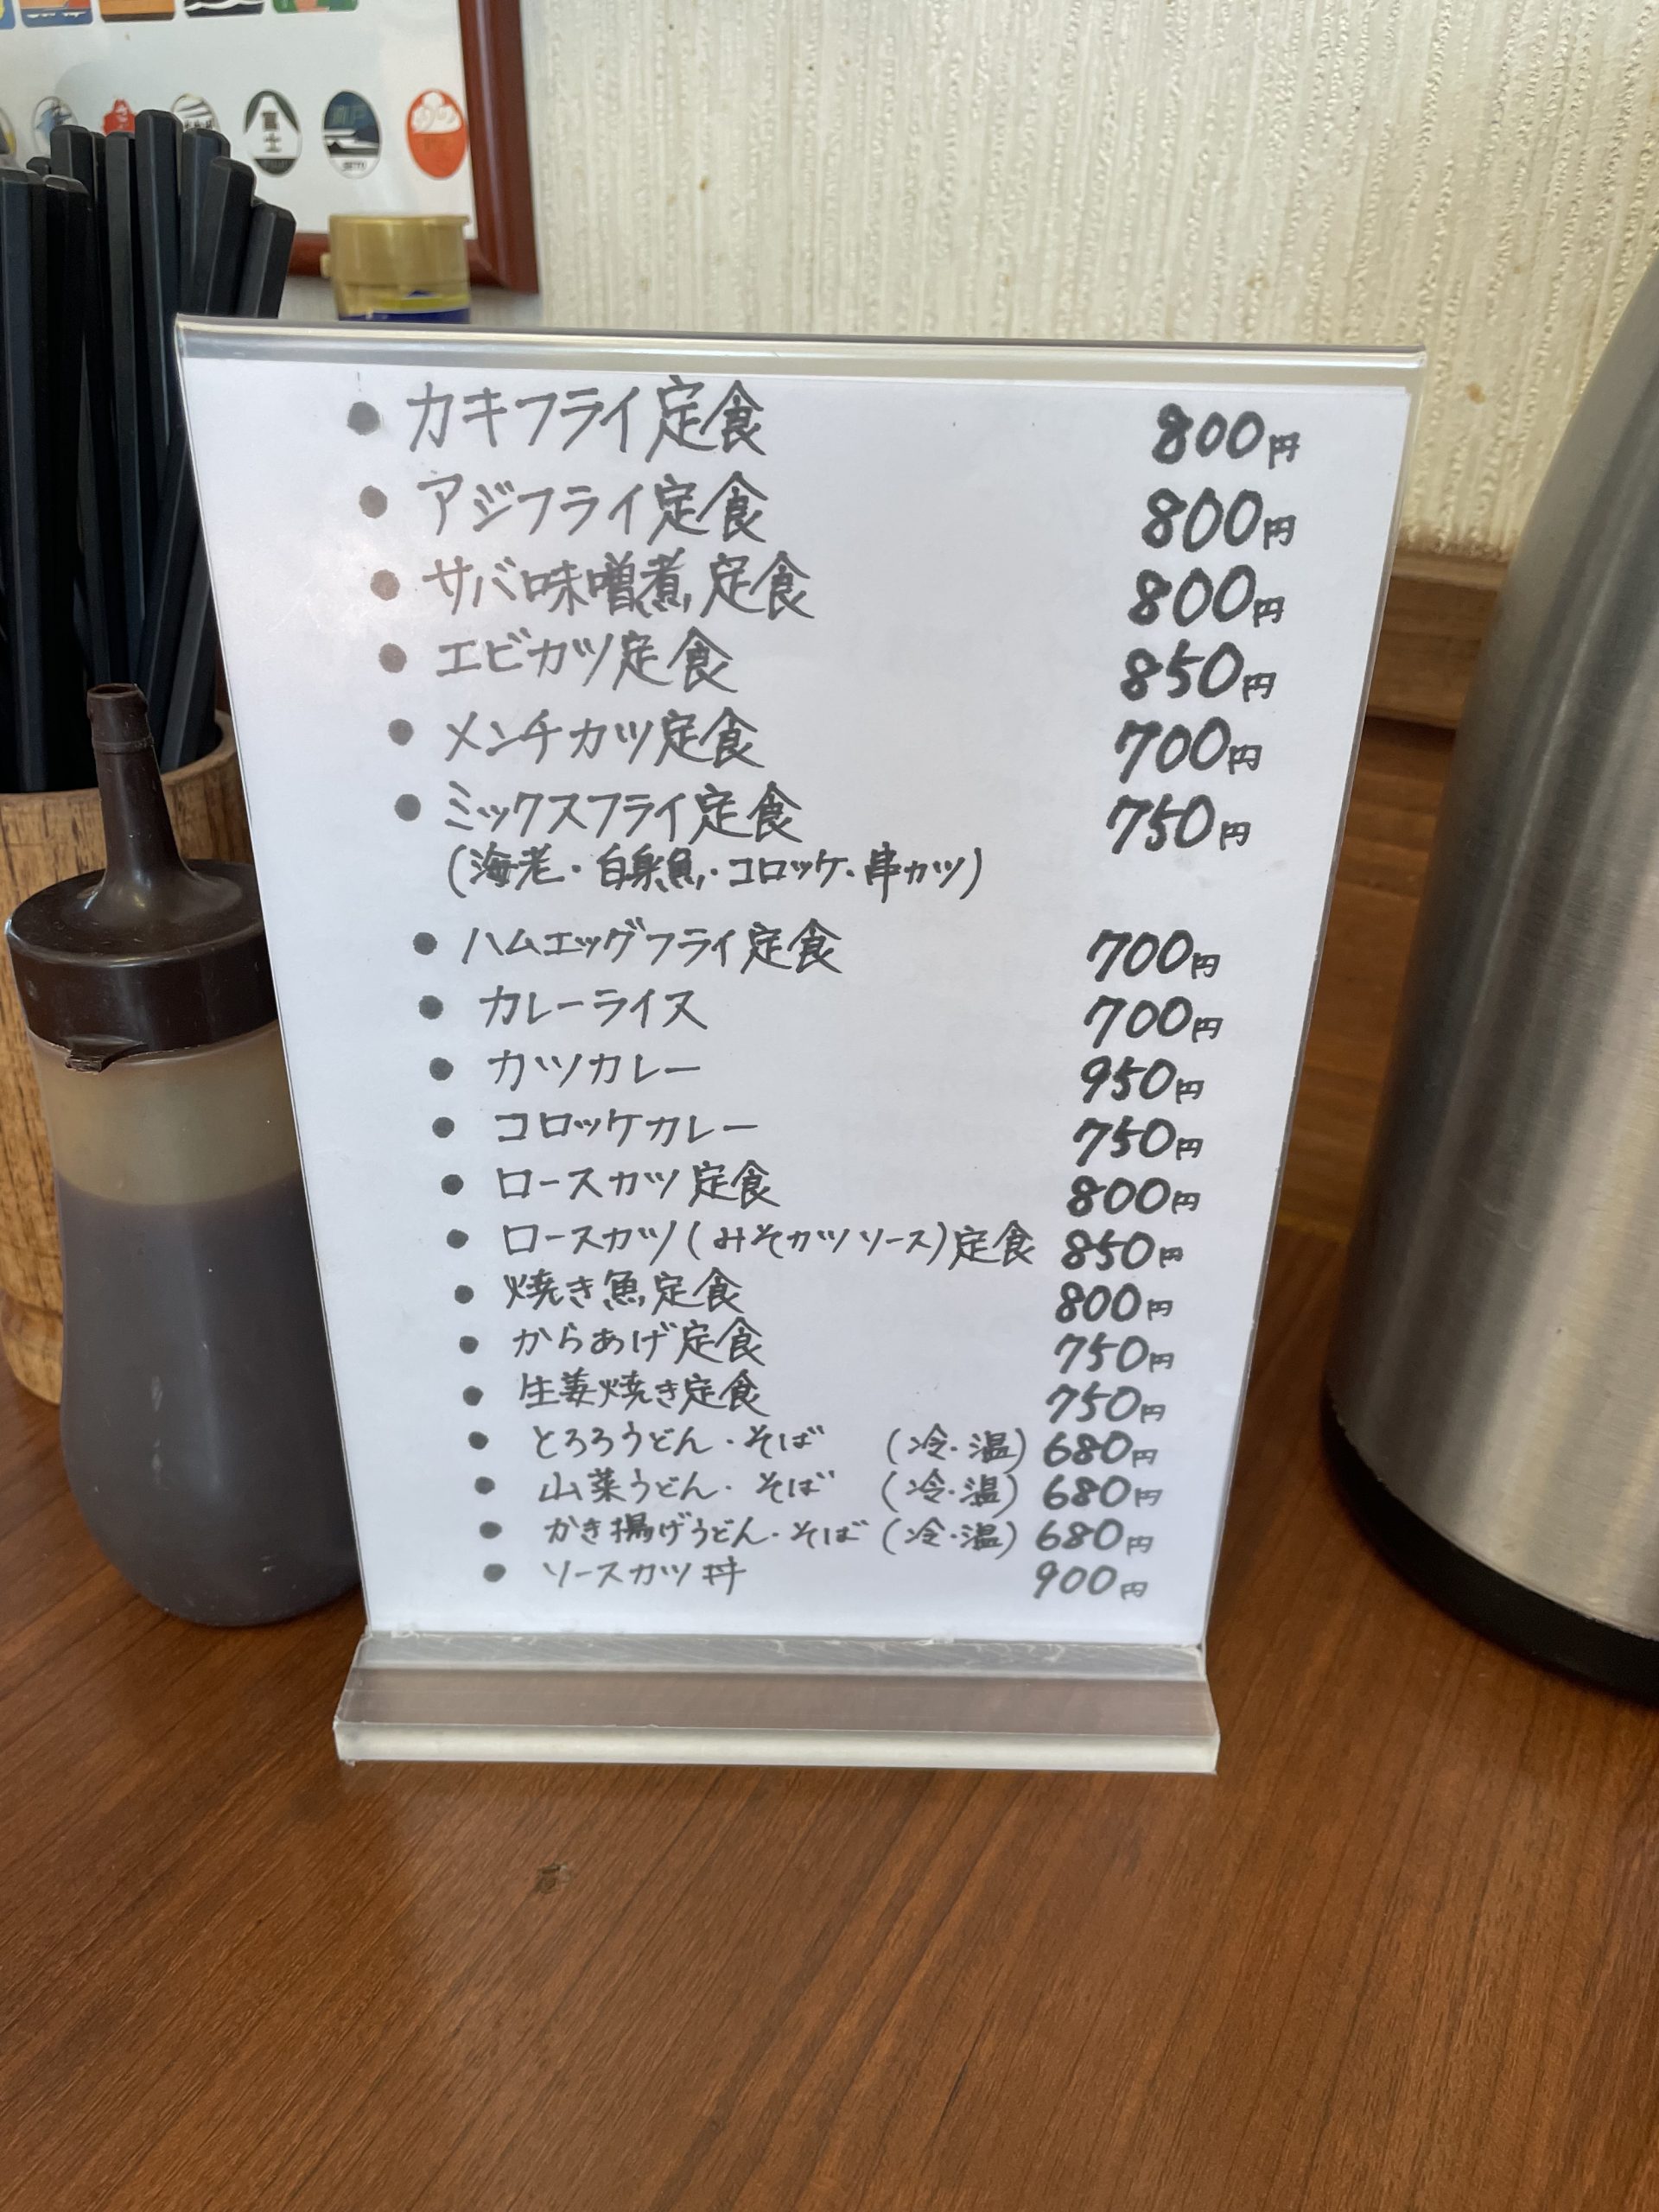 富士
• カキフライ定食 800円
• アジフライ定食 800円
• サバ味噌煮定食 800円
• エビカツ定食 850円
• メンチカツ定食 700円
• ミックスフライ定食 750円
(海老・白身魚・コロッケ・串カツ)
• ハムエッグフライ定食 700円
• カレーライス 700円
• カツカレー 950円
• コロッケカレー 750円
• ロースカツ定食 800円
• ロースカツ(みそカツソース)定食 850円
• 焼き魚定食 800円
• からあげ定食 750円
• 生姜焼き定食 750円
• とろろうどん・そば (冷・温) 680円
• 山菜うどん・そば (冷・温) 680円
• かき揚げうどん・そば (冷・温) 680円
• ソースカツ丼 900円